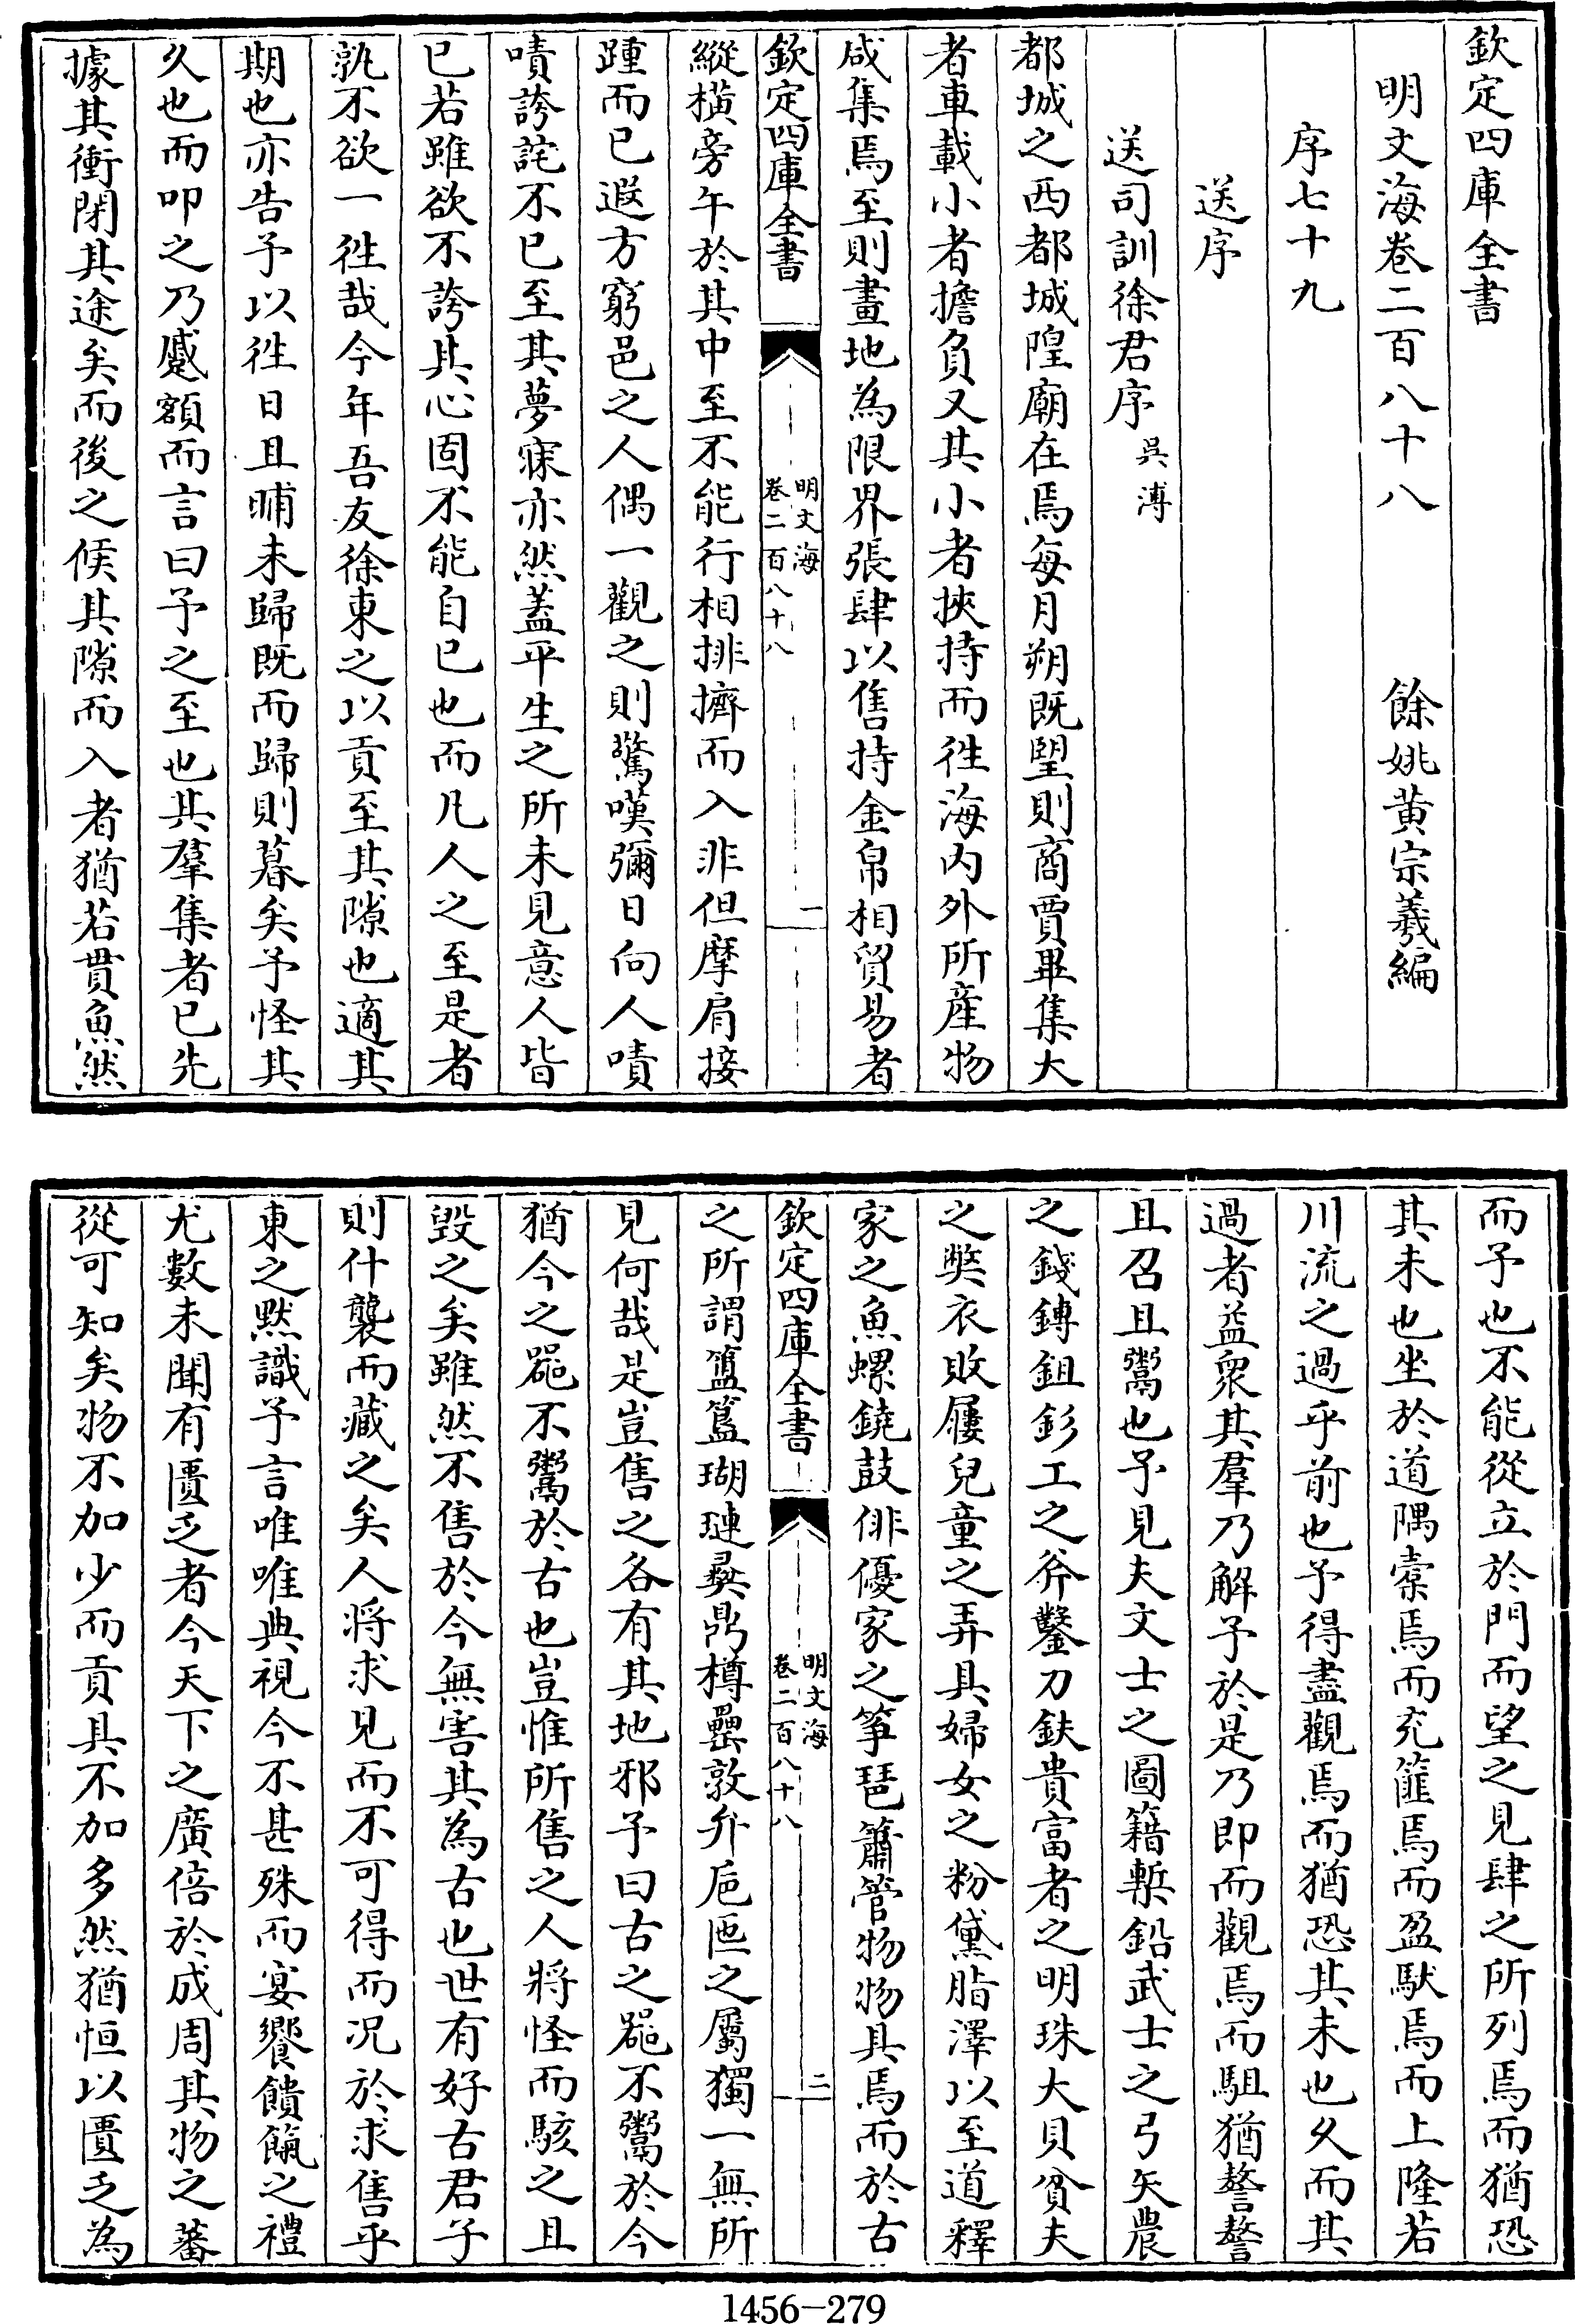 欽定四庫全書
明文海卷二百八十八　餘姚黄宗羲編
序七十九
送序
送司訓徐君序　吳溥
都城之西都城隍廟在焉每月朔既望則商賈畢集大
者車載小者擔負又其小者挾持而徃海内外所産物
咸集焉至則畫地為限界張肆以售持金帛相貿易者
欽定四庫全書　明文海　卷二百八十八　一
縱橫旁午於其中至不能行相排擠而入非但摩肩接
踵而已遐方窮邑之人偶一觀之則驚嘆彌日向人嘖
嘖誇詫不已至其夢寐亦然蓋平生之所未見意人皆
已若雖欲不誇其心固不能自已也而凡人之至是者
孰不欲一徃哉今年吾友徐東之以貢至其隙也適其
期也亦告予以徃日且晡未歸既而歸則暮矣予怪其
久也而叩之乃蹙額而言曰予之至也其羣集者已先
據其衝閉其途矣而後之候其隙而入者猶若貫魚然
而予也不能從立於門而望之見肆之所列焉而猶恐
其未也坐於道隅橐焉而充篚焉而盈馱焉而上隆若
川流之過乎前也予得盡觀焉而猶恐其未也久而其
過者益衆其羣乃解予於是乃即而觀焉而駔猶謷謷
且召且鬻也予見夫文士之圖籍槧鉛武士之弓矢農
之錢鎛鉏釤工之斧鑿刀鈇貴富者之明珠大貝貧夫
之獘衣敗屨兒童之弄具婦女之粉黛脂澤以至道釋
家之魚螺鐃鼓俳優家之箏琶簫管物物具焉而於古
欽定四庫全書　明文海　卷二百八十八　二
之所謂簠簋瑚璉彛鼎樽罍敦弁巵匜之屬獨一無所
見何哉是豈售之各有其地邪予曰古之噐不鬻於今
猶今之噐不鬻於古也豈惟所售之人將怪而駭之且
毁之矣雖然不售於今無害其為古也世有好古君子
則什襲而藏之矣人将求見而不可得而况於求售乎
東之黙識予言唯唯典視今不甚殊而宴饗饋餼之禮
尤數未聞有匱乏者今天下之廣倍於成周其物之蕃
從可知矣物不加少而貢具不加多然猶恒以匱乏為
1456-279